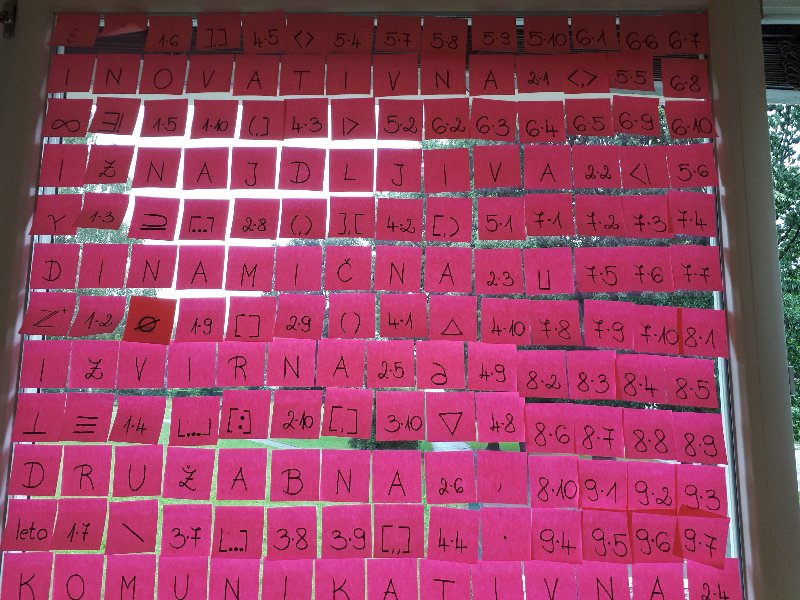 ε 1·6 ]] 4·5 <> 5·4 5·7 5·8 5·9 5·10 6·1 6·6 6·7
I N O V A T I V N A 2·1 <,> 5·5 6·8
∞ ∃! 1·5 1·10 (,] 4·3 |> 5·2 6·2 6·3 6·4 6·5 6·9 6·10
I Z N A J D L J I V A 2·2 <| 5·6
γ 1·3 ⊇ [...] 2·8 (,) ],[ 4·2 [,) 5·1 7·1 7·2 7·3 7·4
D I N A M I Č N A 2·3 ⊔ 7·5 7·6 7·7
ℤ⁺ 1·2 ∅ 1·9 [] 2·9 () 4·1 △ 4·10 7·8 7·9 7·10 8·1
I Z V I R N A 2·5 ∂ 4·9 8·2 8·3 8·4 8·5
⊥ ≡ 1·4 [...] [:] 2·10 [,] 3·10 ▽ 4·8 8·6 8·7 8·8 8·9
D R U Ž A B N A 2·6 , 8·10 9·1 9·2 9·3
leto 1·7 \ 3·7 [...] 3·8 3·9 [,,] 4·4 · 9·4 9·5 9·6 9·7
K O M U N I K A T I V N A 2·4